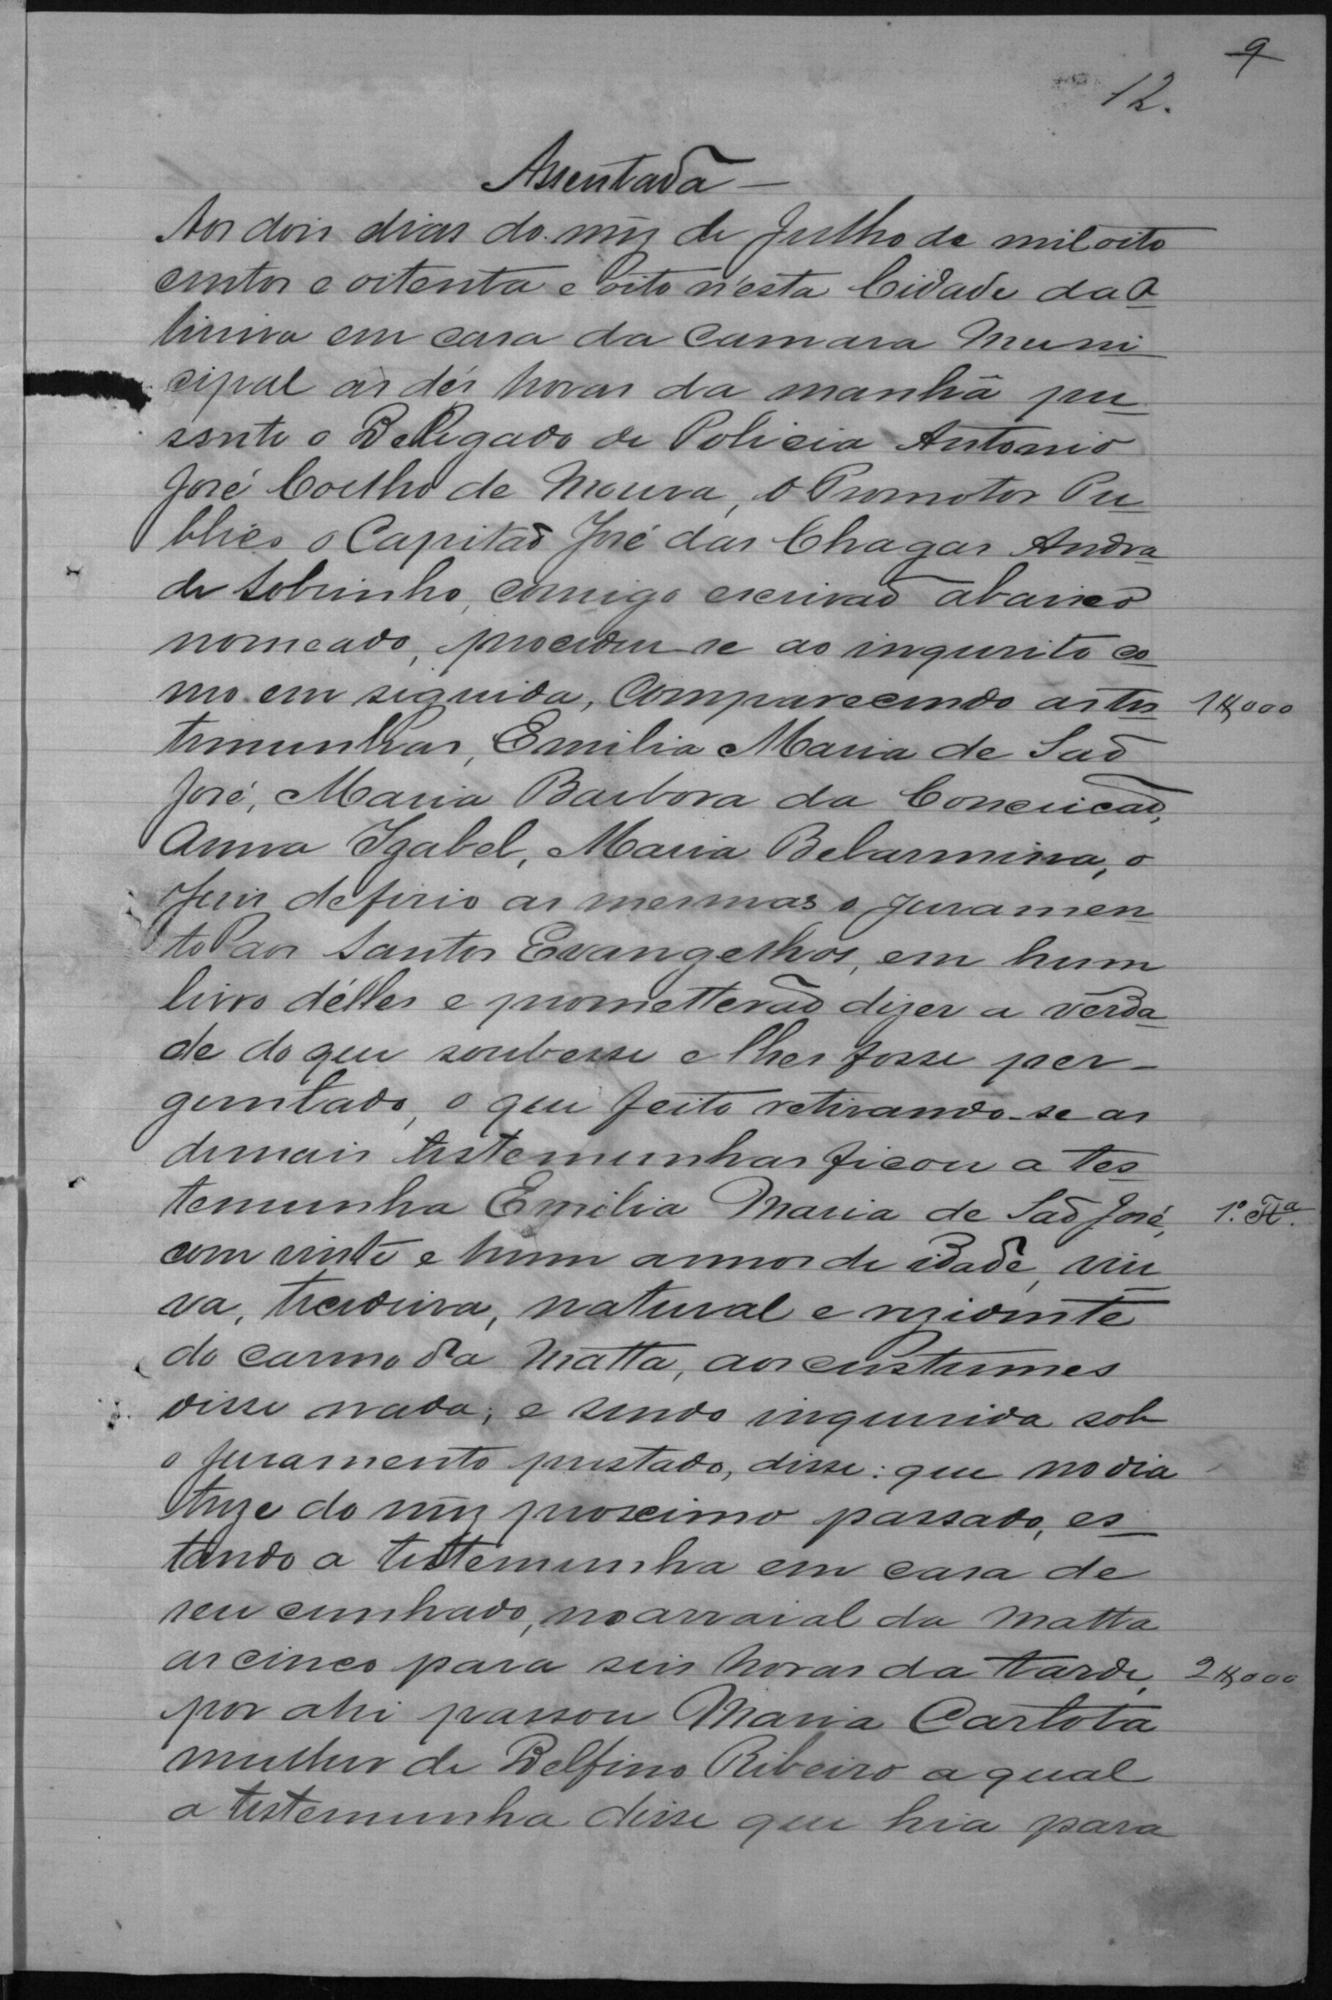 9
12.
Assentada —
Aos dois dias do mez de Julho de mil oito
centos e oitenta e oito n'esta Cidade da O
liveira em casa da camara Muni
cipal as dés horas da manhã pre
sente o Delegado de Policia Antonio
José Coelho de Moura, o Promotor Pu
blico o Capitaõ José das Chagas Andra
de Sobrinho, comigo escrivaõ abaixo
nomeado, procedeu-se ao inquerito co
mo em seguida, Comparecendo as tes
temunhas, Emilia Maria de Saõ
José, Maria Barbora da Conceicaõ,
Anna Izabel, Maria Belarmina, o
Juis deferio as mesmas o juramen
to aos Santos Evangelhos, em hum
livro délles e prometteraõ dizer a verda
de do que soubesse e lhes fosse per-
guntado, o que feito retirando-se as
demais testemunhas ficou a tes
temunha Emilia Maria de Saõ José,
com vinte e hum annos de idade, viu
va, tecedeira, natural e rezidente
do carmo da Matta, aos custumes
disse nada; e sendo inquerida sob
o juramento prestado, disse: que no dia
treze do mez proximo passado, es
tando a testemunha em casa de
seu cunhado, no arraial da Matta
as cinco para seis horas da tarde,
por ahi passou Maria Carlota
mulher de Delfino Ribeiro a qual
a testemunha disse que hia para
1$000
1.ª Tª.
2$000